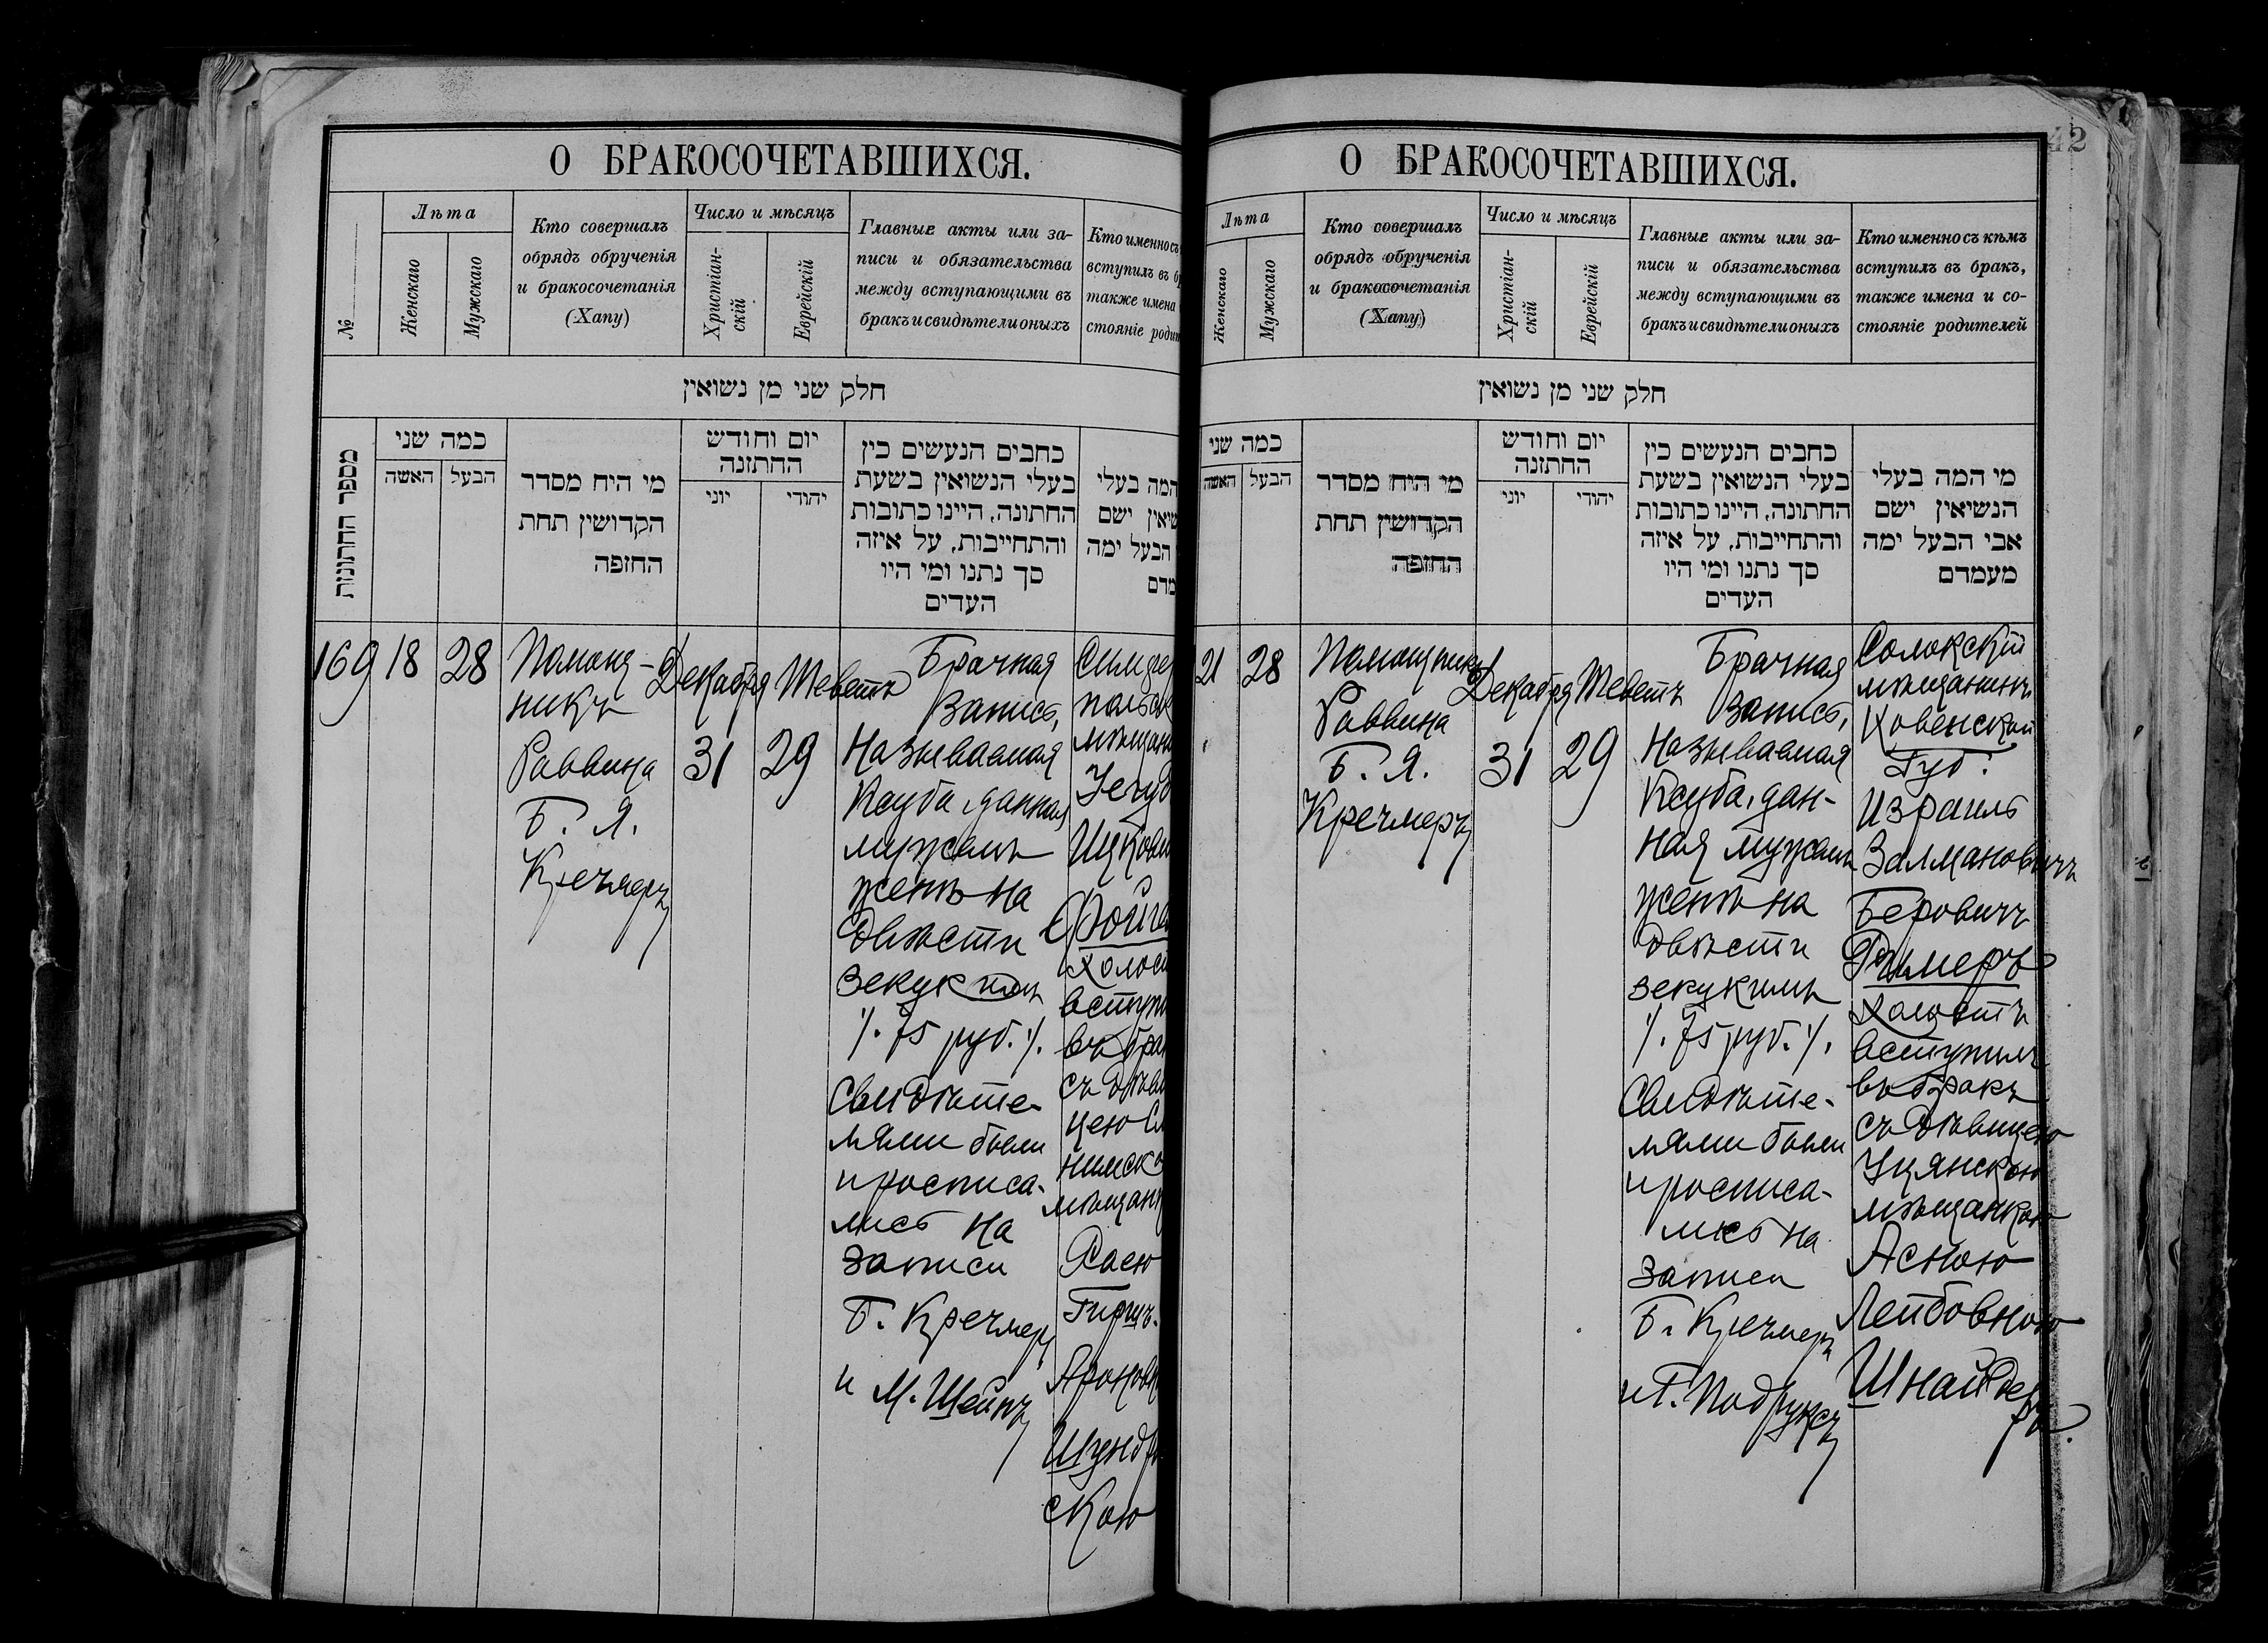 О БРАКОСОЧЕТАВШИХСЯ.
№
Лѣта
Женскаго
Мужскаго
Кто совершалъ
обрядъ обрученія
и бракосочетанія
(Хапу)
Число и мѣсяцъ
Христіан-
скій
Еврейскій
Главные акты или за-
писи и обязательства
между вступающими въ
бракъ и свидѣтели оныхъ
Кто именно съ
вступилъ въ
также имена
стояніе
חלק שני מן נשואין
מספר החתונות
כמה שני
האשה
הבעל
מי היח מסדר
הקדושין תחת
החופה
יום וחודש
החתונה
יוני
יהודי
כחבים הנעשים כין
בעלי הנשואין בשעת
החתונה, היינו כתובות
והתחייבות, על איזה
סך נתנו ומי היו
העדים
המה בעלי
ישם
הבעל ימה
169
18
28
Помощ-
никъ
Раввина
Б. Я.
Кречмеръ
Декабря
31
Теветъ
29
Брачная
запись,
называвмая
Ксуба, данная
мужемъ
женѣ на
двѣсти
зекукимъ
/. 75 руб. /.
Свидѣте-
лями были
и росписа-
лись на
записи
Б. Кречмеръ
и М. Шейнъ
мѣщан
съ дѣви
цею
мѣщан
Хаею
Гиршъ-
Ароновн
скою
О БРАКОСОЧЕТАВШИХСЯ.
42
Лѣта
Женскаго
Мужскаго
Кто совершалъ
обрядъ обрученія
и бракосочетанія
(Хапу)
Число и мѣсяцъ
Христіан-
скій
Еврейскій
Главные акты или за-
писи и обязательства
между вступающими въ
бракъ и свидѣтели оныхъ
Кто именно съ кѣмъ
вступилъ въ бракъ,
также имена и со-
стояніе родителей
חלק שני מן נשואין
כמה שני
האשה
הבעל
מי היח מסדר
הקדושין תחת
החופה
יום וחודש
החתונה
יוני
יהודי
כחבים הנעשים כין
בעלי הנשואין בשעת
החתונה, היינו כתובות
והתחייבות, על איזה
סך נתנו ומי היו
העדים
מי המה בעלי
הנשיאין ישם
אבי הבעל ימה
מעמדם
21
28
Помощникъ
Раввина
Б. Я.
Кречмеръ
Декабря
31
Теветъ
29
Брачная
запись,
называвмая
Ксуба, дан-
ная мужемъ
женѣ на
двѣсти
зекукимъ
/. 75 руб. /.
Свидѣте-
лями были
и росписа-
лись на
записи
Б. Кречмеръ
и Г. Подруксъ
Солокскій
мѣщанинъ
Ковенской
Губ.
Израиль
Залмановичъ
Беровичъ
Римеръ
холостъ
вступилъ
въ бракъ
съ дѣвицею
Уцянскою
мѣщанкою
Асною
Лейбовною
Шнайдеръ.